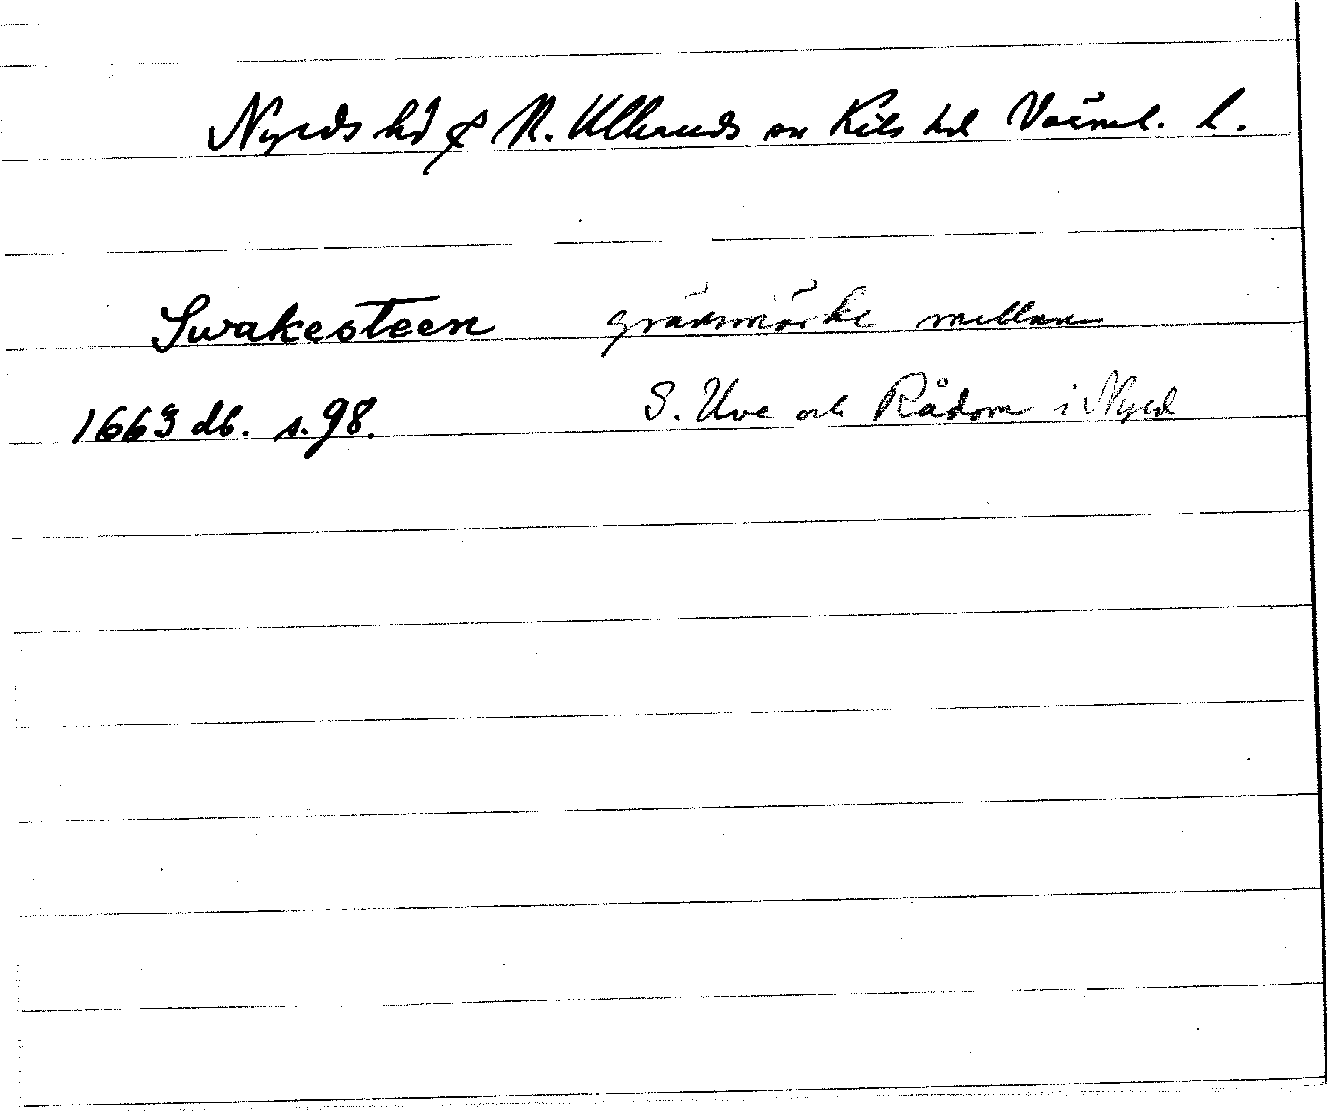 Nyeds hd & N. Ulleruds sn Kils hd Värml. l.
Swakesteen gränsmärke mellan
1663 db. s. 98. S. Uve och Rådom i Nyed